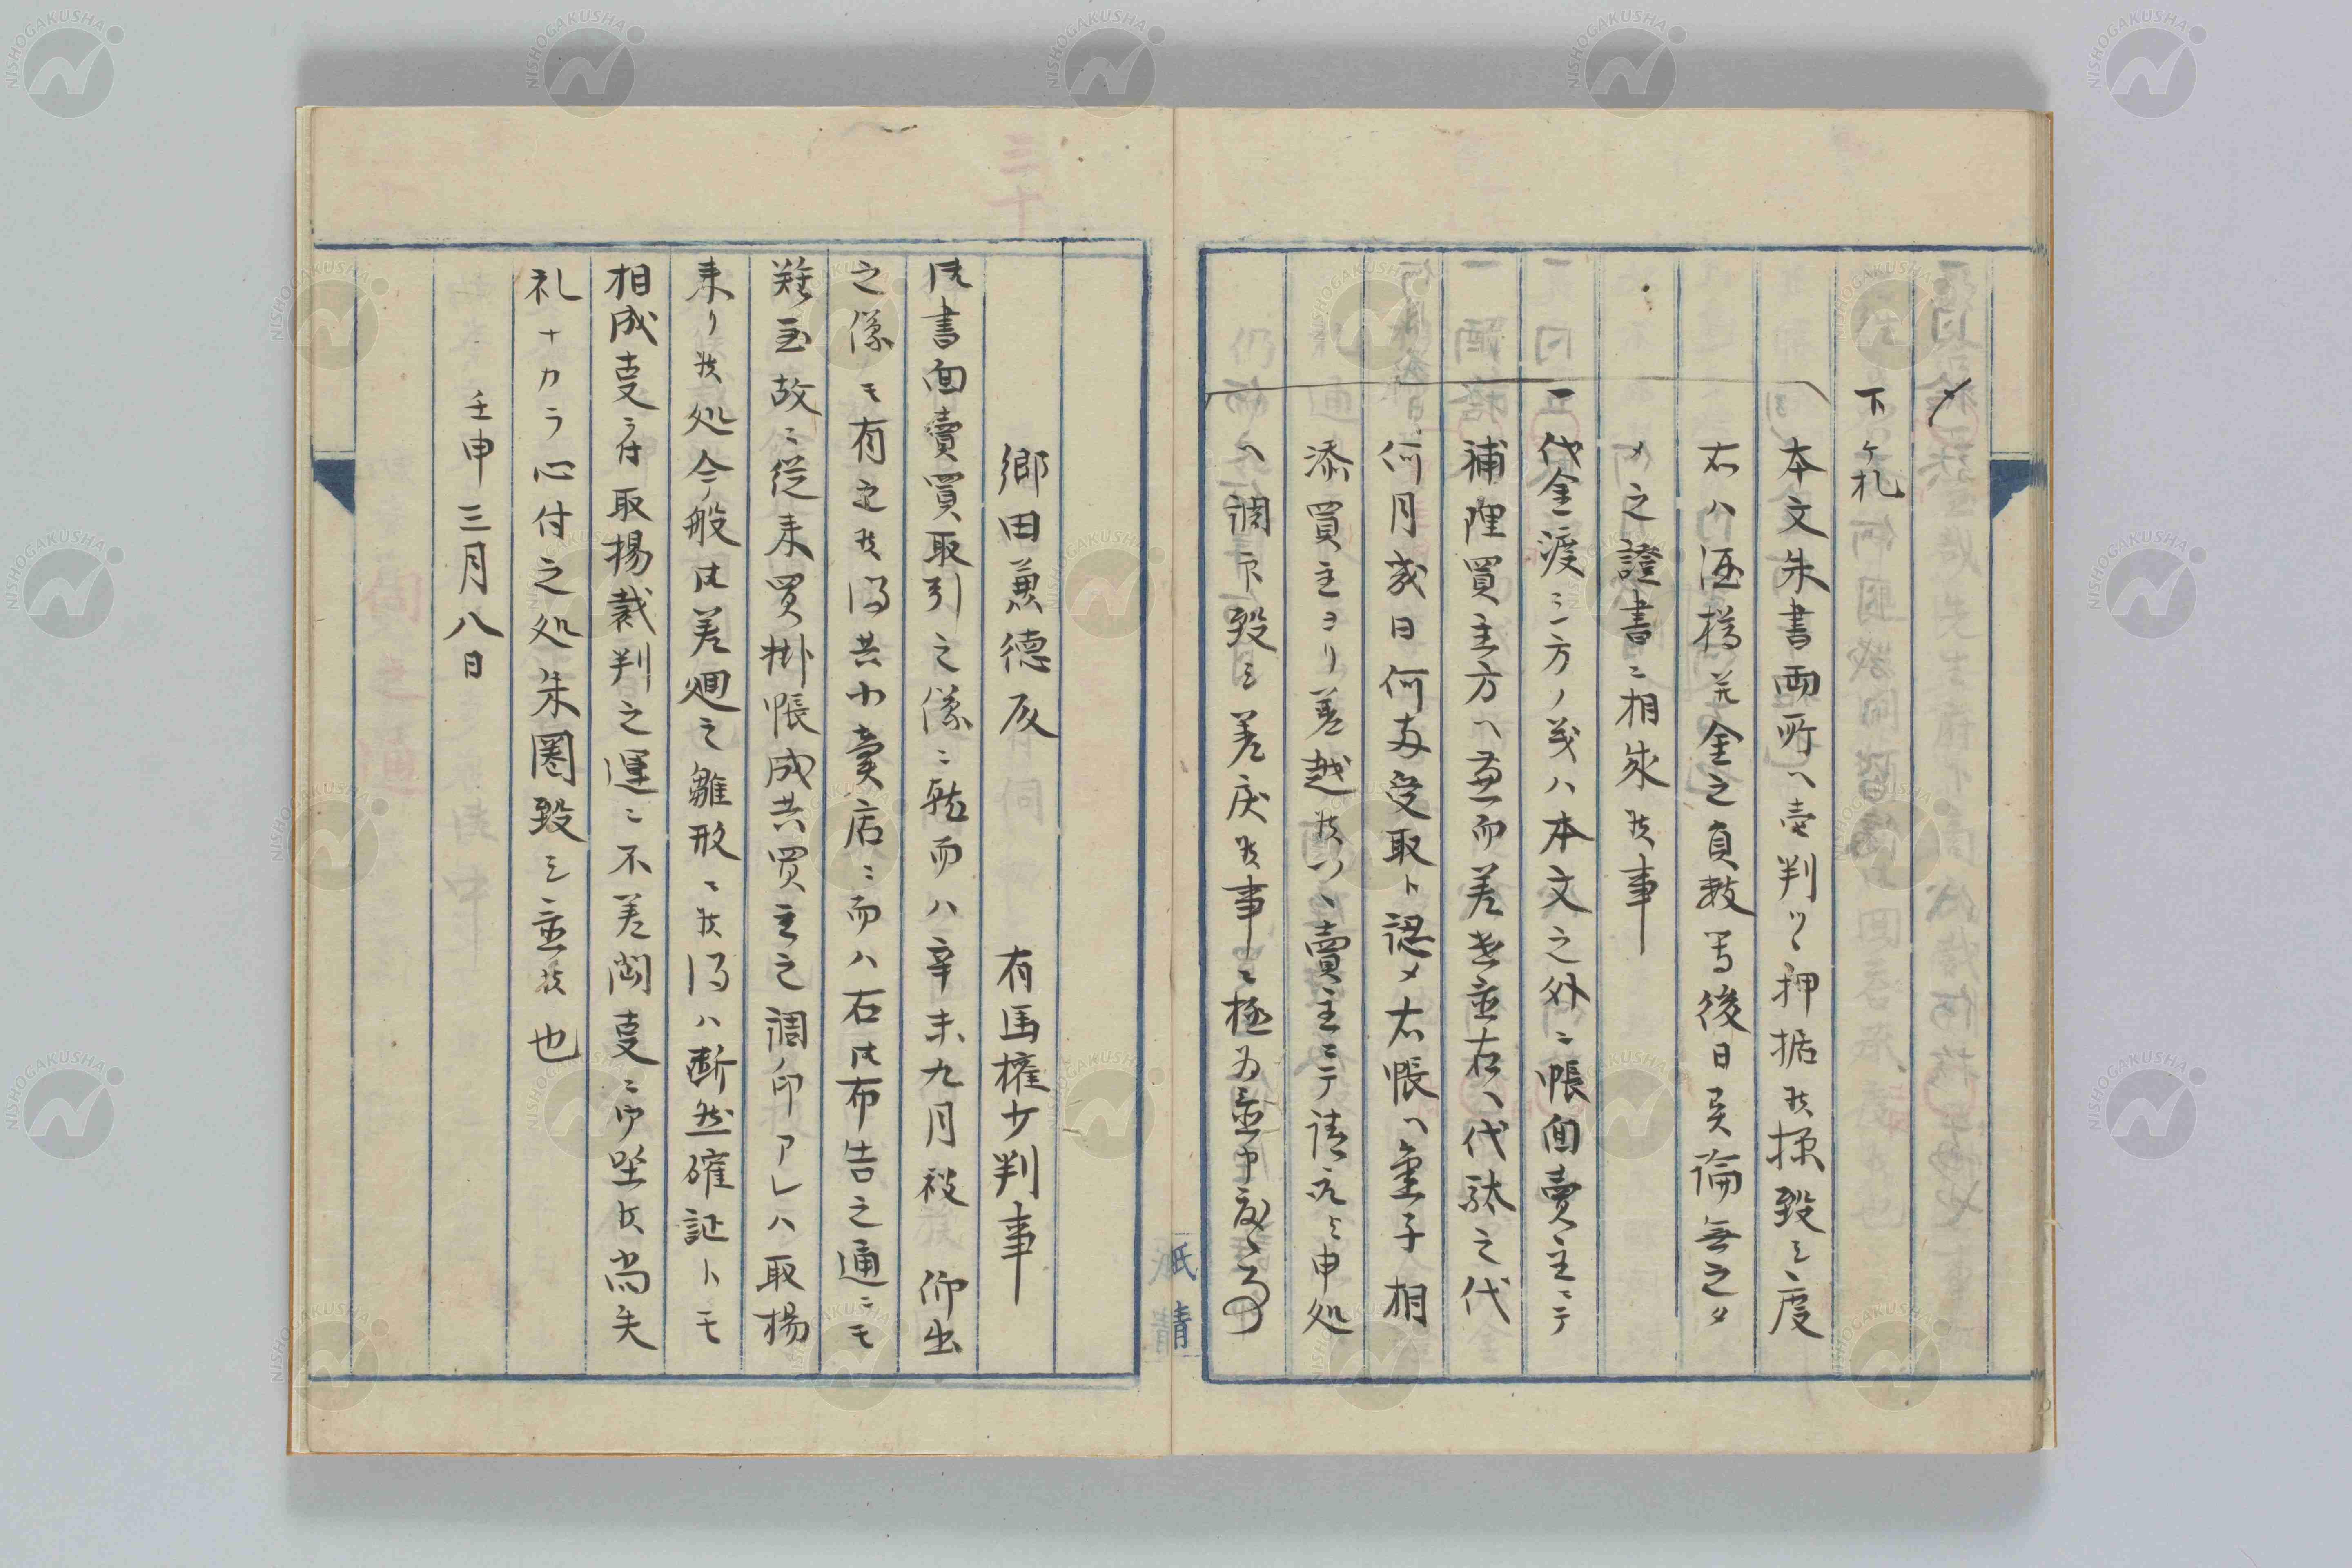 〆
下ケ札
本文朱書両所ヘ壱判ツヽ押据候様致シ度
右ハ酒樽並金之員数等後日異論無之タ
メ之證書ニ相成候事
一代金渡シ方ノ義ハ本文之外ニ帳面賣主ニテ
補理買主方ヘ兼而差遣置右ヘ代駄之代
何月幾日何寄受取ト認メ右帳ヘ金子相
添買主ヨリ差越候ハヽ賣主ニテ請取候申処
ヘ調印致シ差戻候事ニ極メ置申度候事
郷田兼徳殿 有馬権少判事
此書面賣買取引之儀ニ就而ハ辛未九月被 仰出
之儀モ有之候得共小賣店ニ而ハ右此布告之通ニモ
難至故ニ従来買掛帳成共買主之調印アレハ取揚
来リ候処今般此差廻之雛形ニ候得ハ断然確証トモ
相成吏ニ付取揚裁判之運ニ不差閊吏ニ御坐候尚失
礼ナカラ心付之処朱圏致シ置候也
壬申三月八日